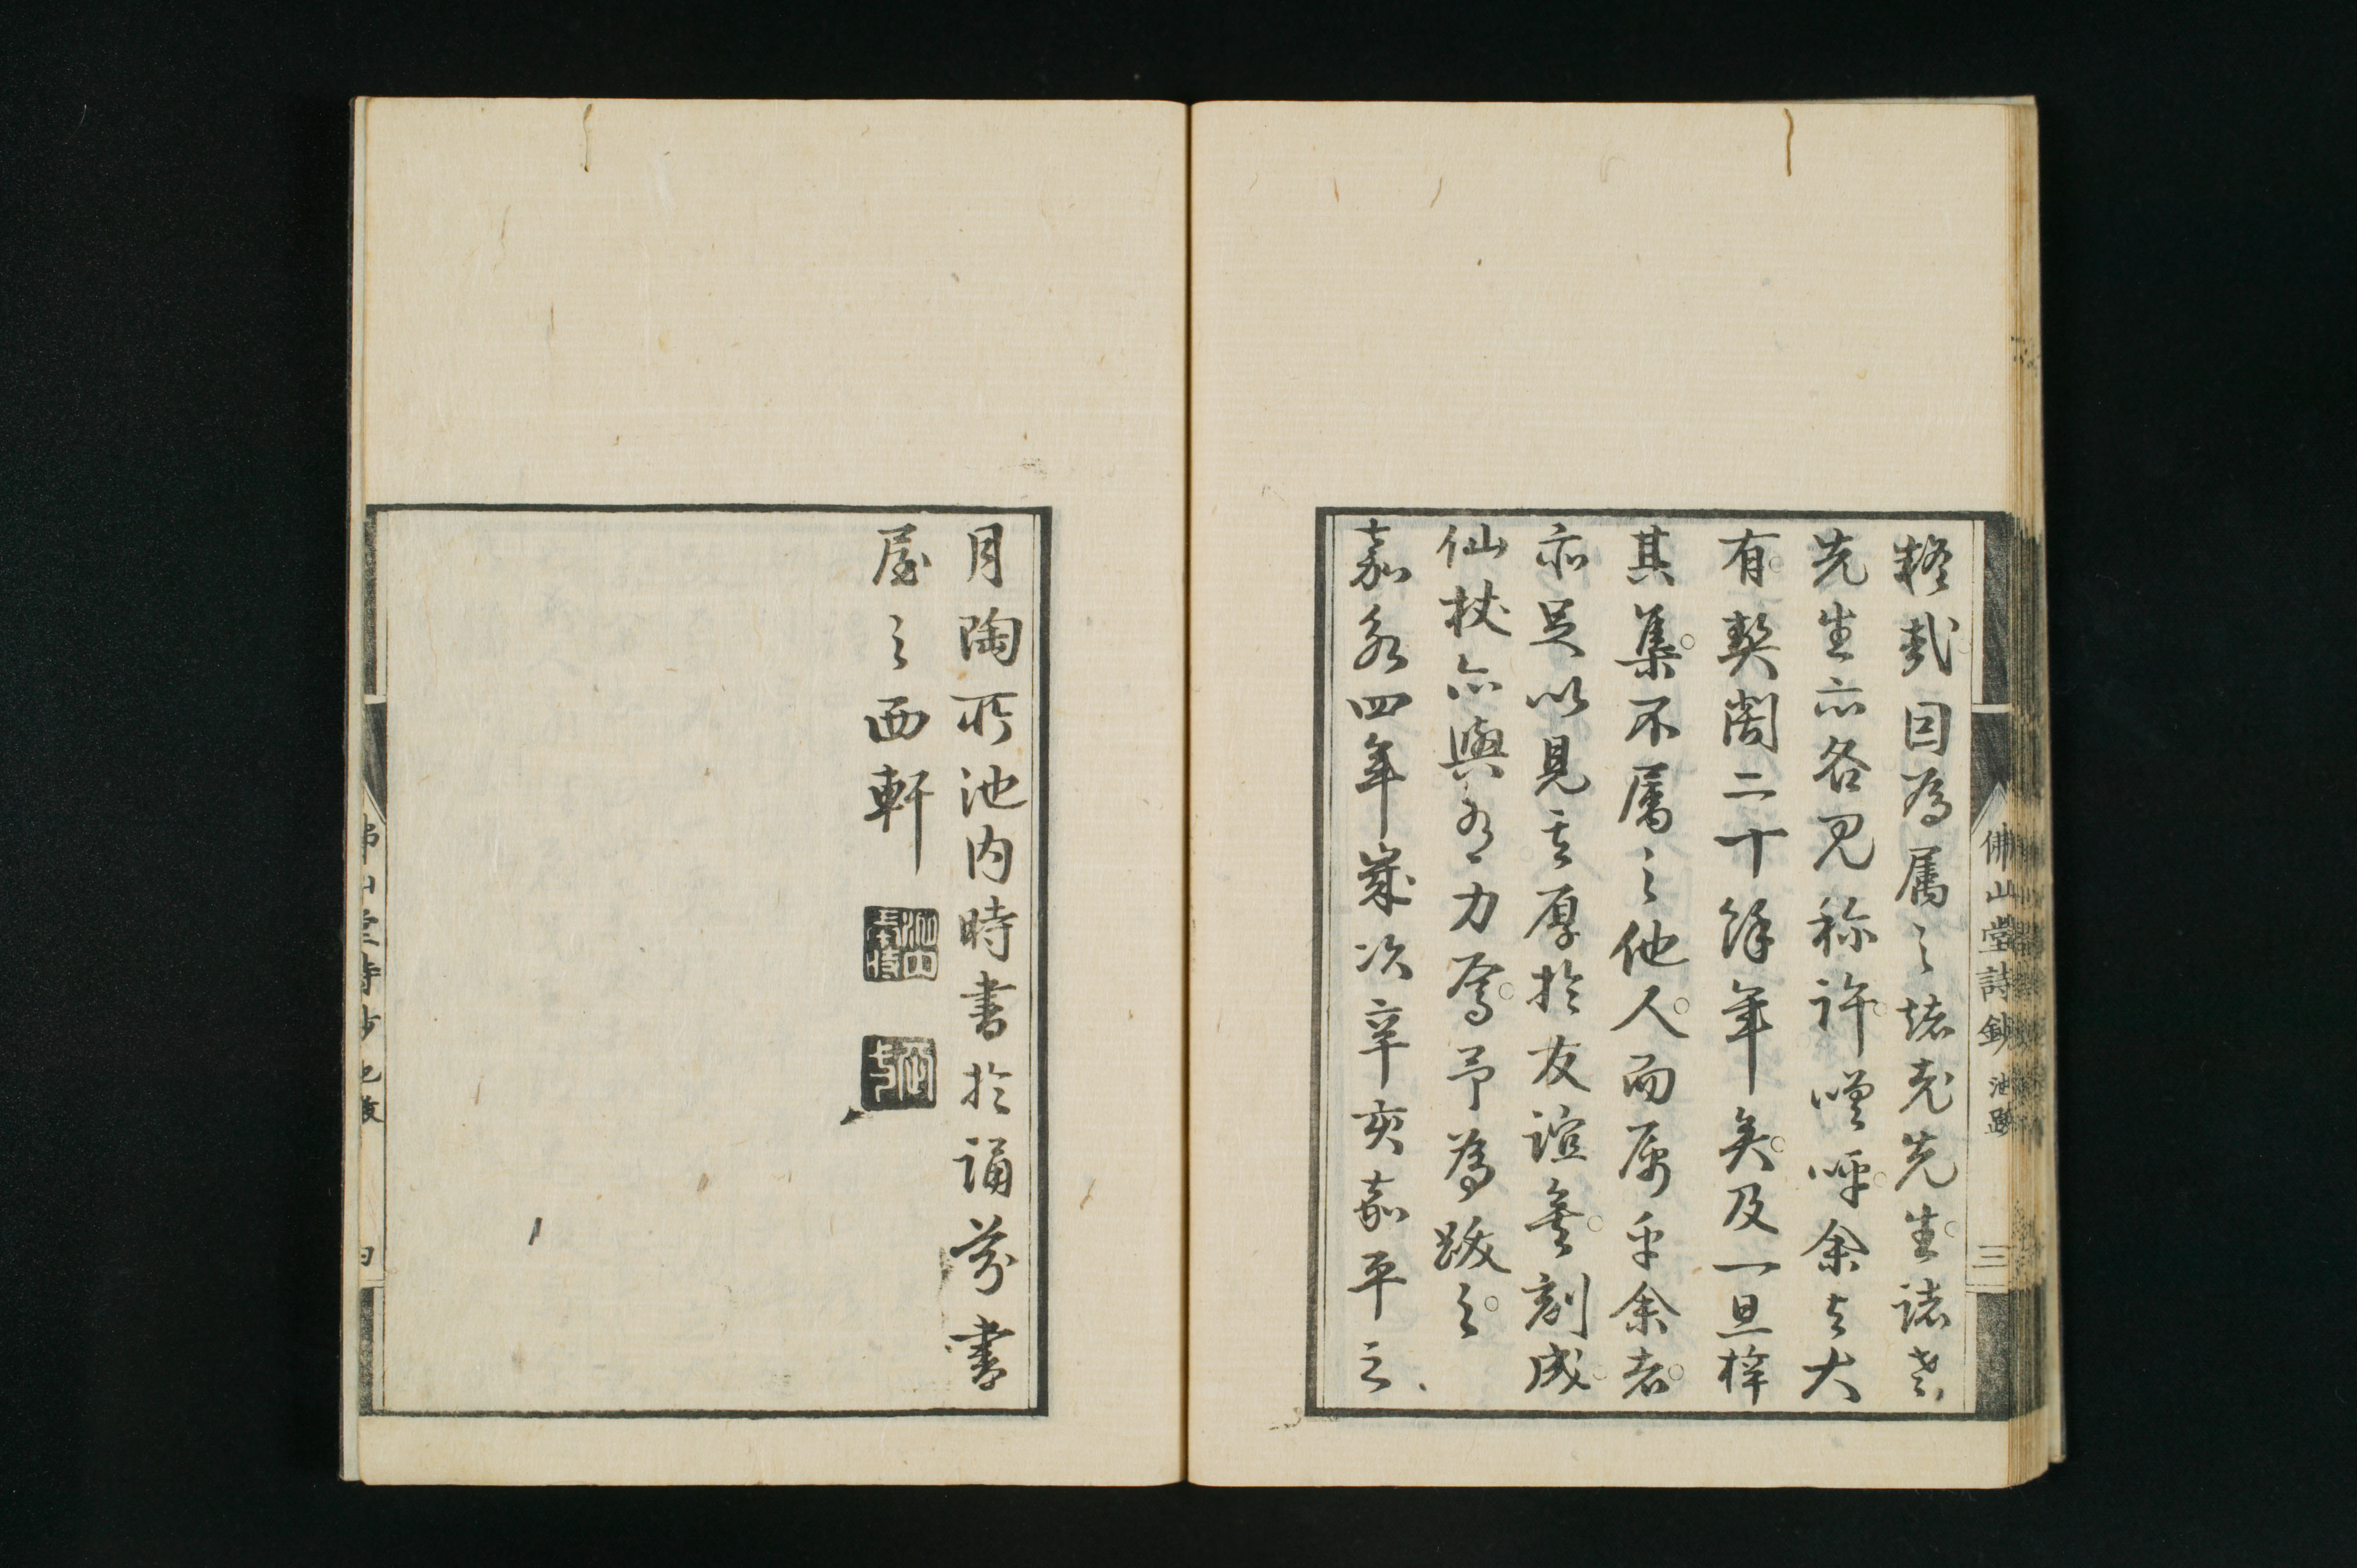 佛山堂詩鈔 池跋 三
哉因為属之諸先生諸老
先生亦各見称許嘆呼余与大
有契闊二十餘年矣及一旦梓
其集不属之他人而属乎余者
亦足以見其厚於友誼矣刻成
仙杖亦與有力焉予為跋之
嘉永四年歳次辛亥嘉平之
月陶所池内時書於誦芬書
屋之西軒